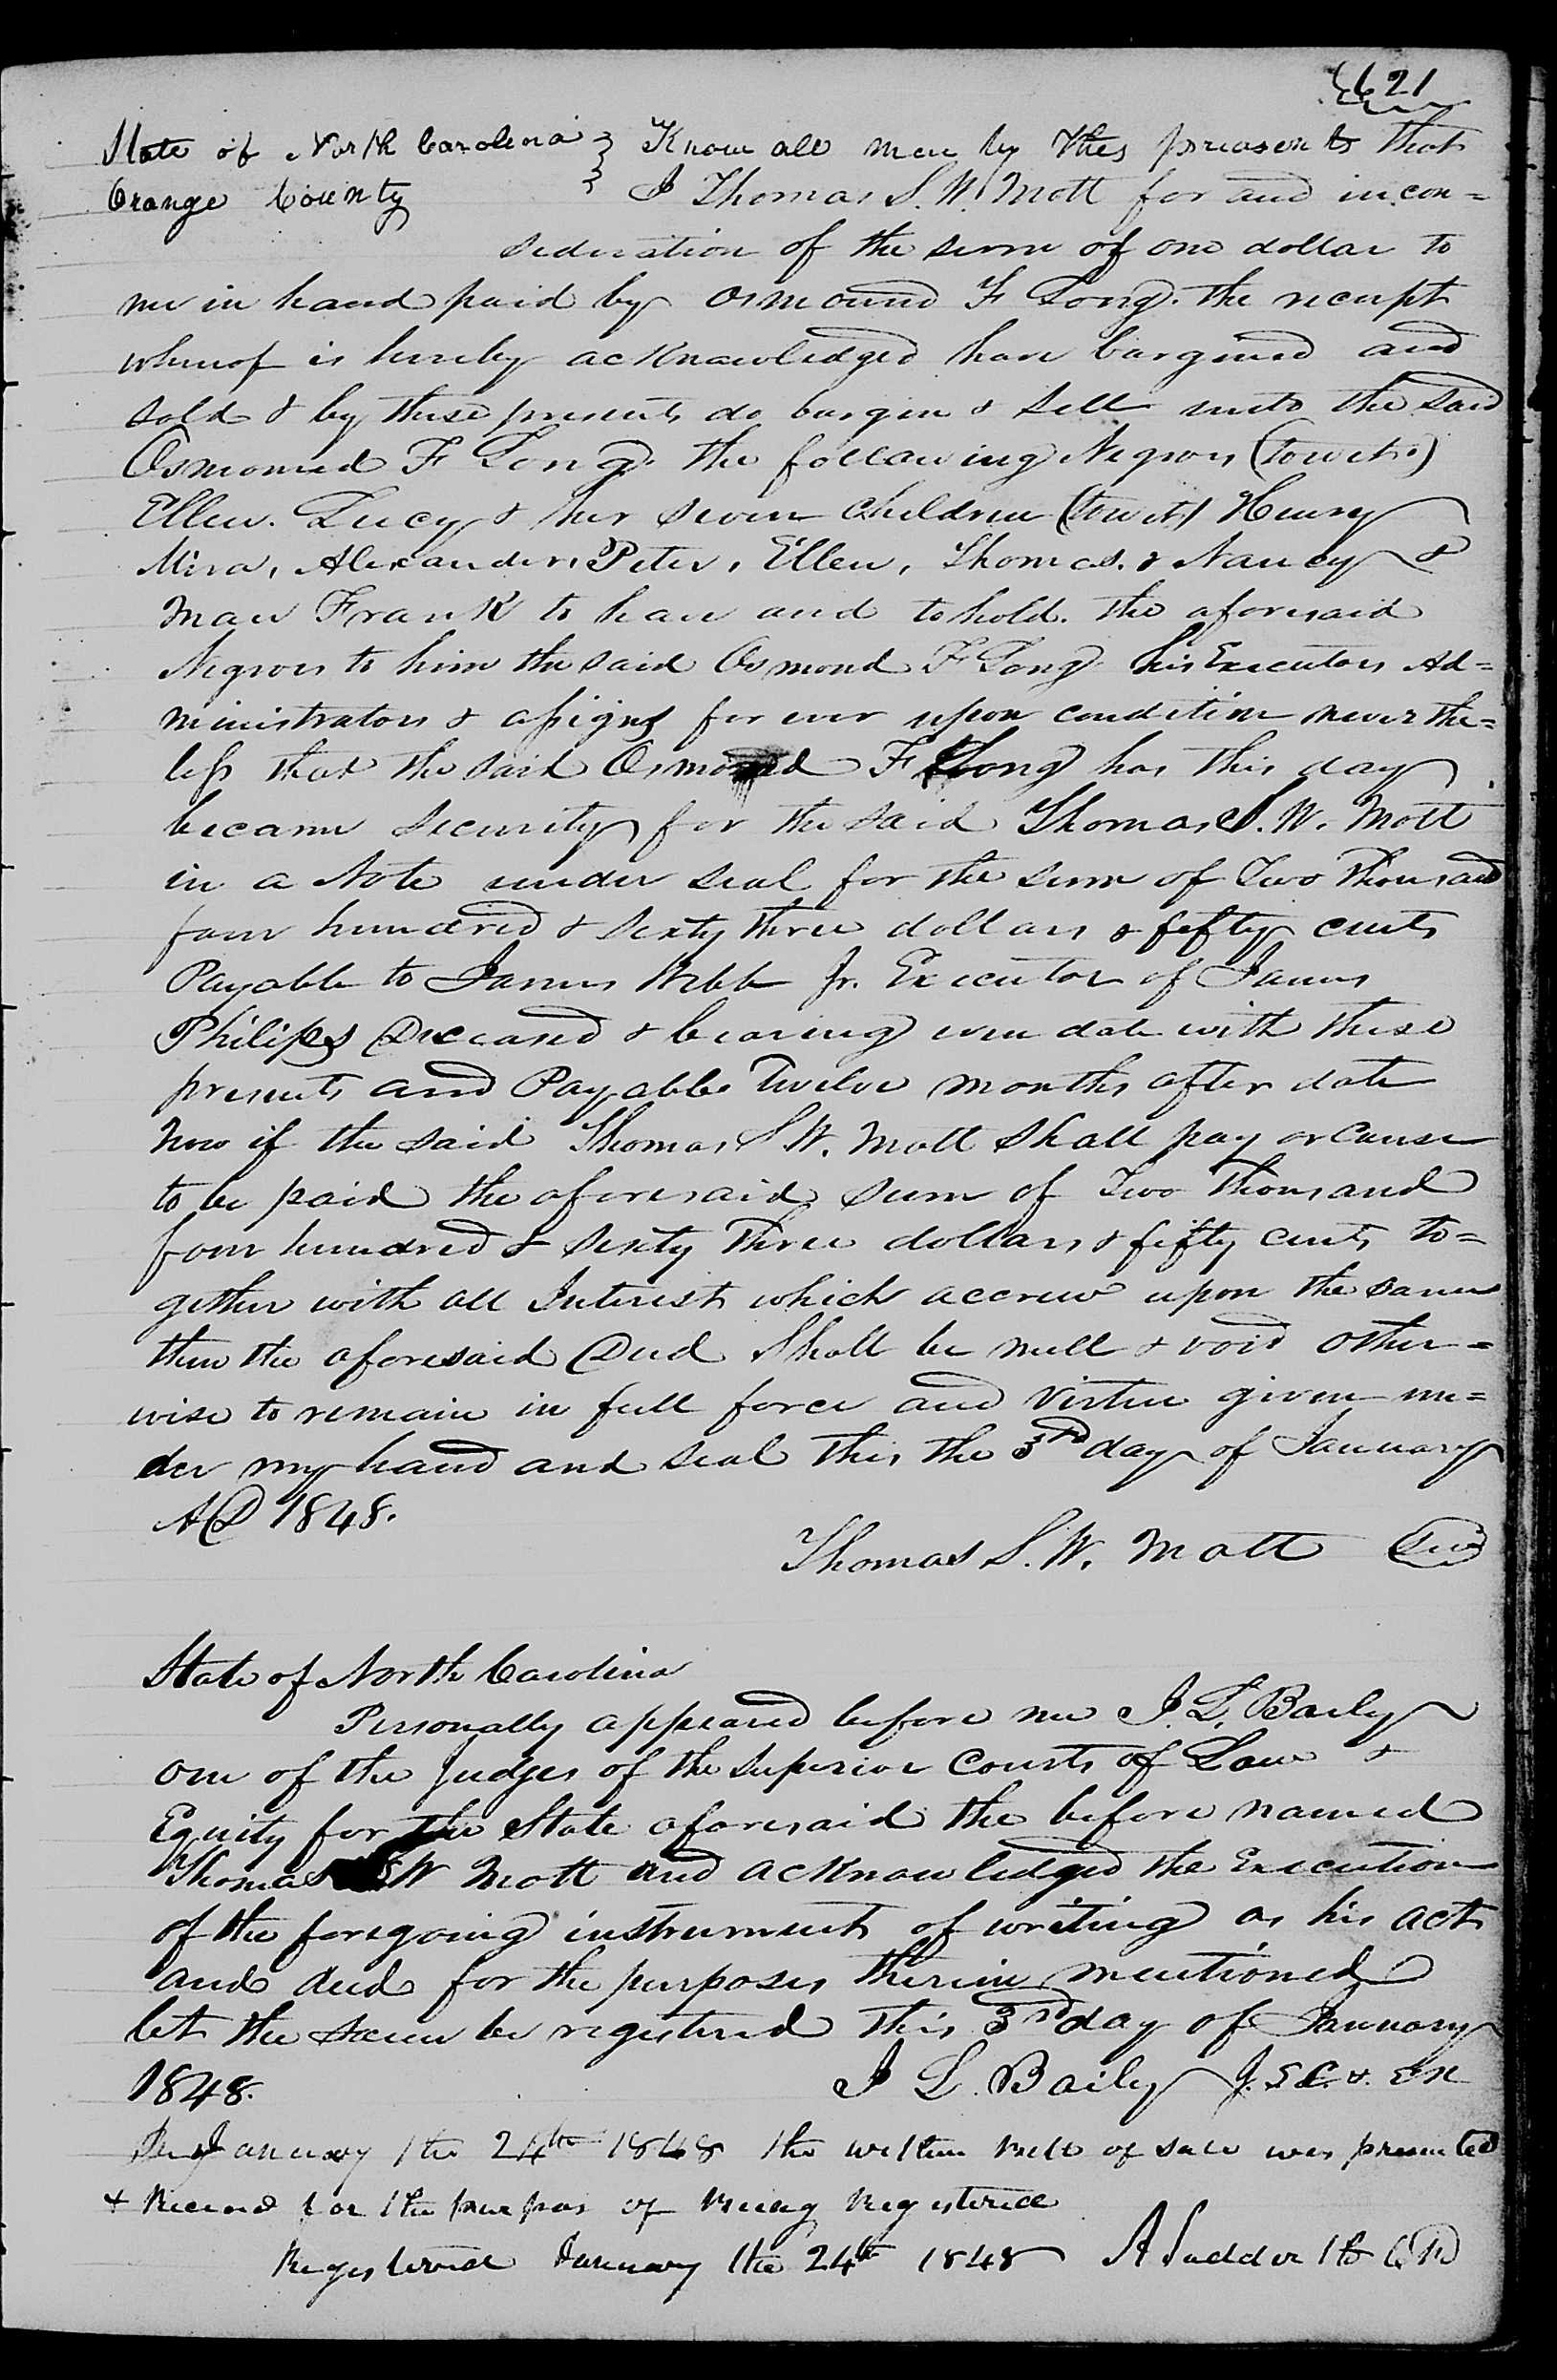 621
State of North Carolina } Know all men by thes preasents that
Orange County } I Thomas S. W. Mott for and in con=
sideration of the sum of one dollar to
me in hand paid by Osmound F Long. the receipt
whereof is hereby acknowledged have bargined and
sold & by these presents do bargin & sell unto the said
Osmomd F Long. the following Negroes (towit.)
Ellen. Lucy & her seven children (towit) Henry
Mira, Alexander, Peter, Ellen, Thomas. & Nancy &
man Frank to have and to hold. the aforesaid
Negroes to him the said Osmond F Long his Executors Ad=
ministrators & assigns for ever upon condition never the=
less that the said Osmond F Long has this day
became security for the said Thomas S. W. Mott
in a Note under seal for the sum of Two Thousand
four hundred & sixty three dollars & fifty cents
Payable to James Webb Jr. Executor of James
Philips Deceased & bearing even date with these
presents and Payable Twelve months after date
now if the said Thomas S W. Mott shall pay or cause
to be paid the aforesaid sum of Two Thousand
four hundred & sixty Three dollars & fifty cents to=
gether with all Interest which accrew upon the same
then the aforesaid Deed shall be null & void other=
wise to remain in full force and virtue given un=
der my hand and seal this the 3rd day of January
AD 1848.
Thomas S. W. Mott Seal
State of North Carolina
Personally appeared before me J. L. Baily
one of the Judges of the Superior Courts of Law &
Equity for the State aforesaid the before named
Thomas S W Mott and acknowledged the Execution
of the foregoing instrument of writing as his act
and deed for the purposes therein mentioned
let the same be registered this 3rd day of January
1848.
J L. Baily J. S. C. &.
January the 24th 1848 the within Bill of sale was presented
& Received for the purpos of Being Registered
Registered January the 24th 1848